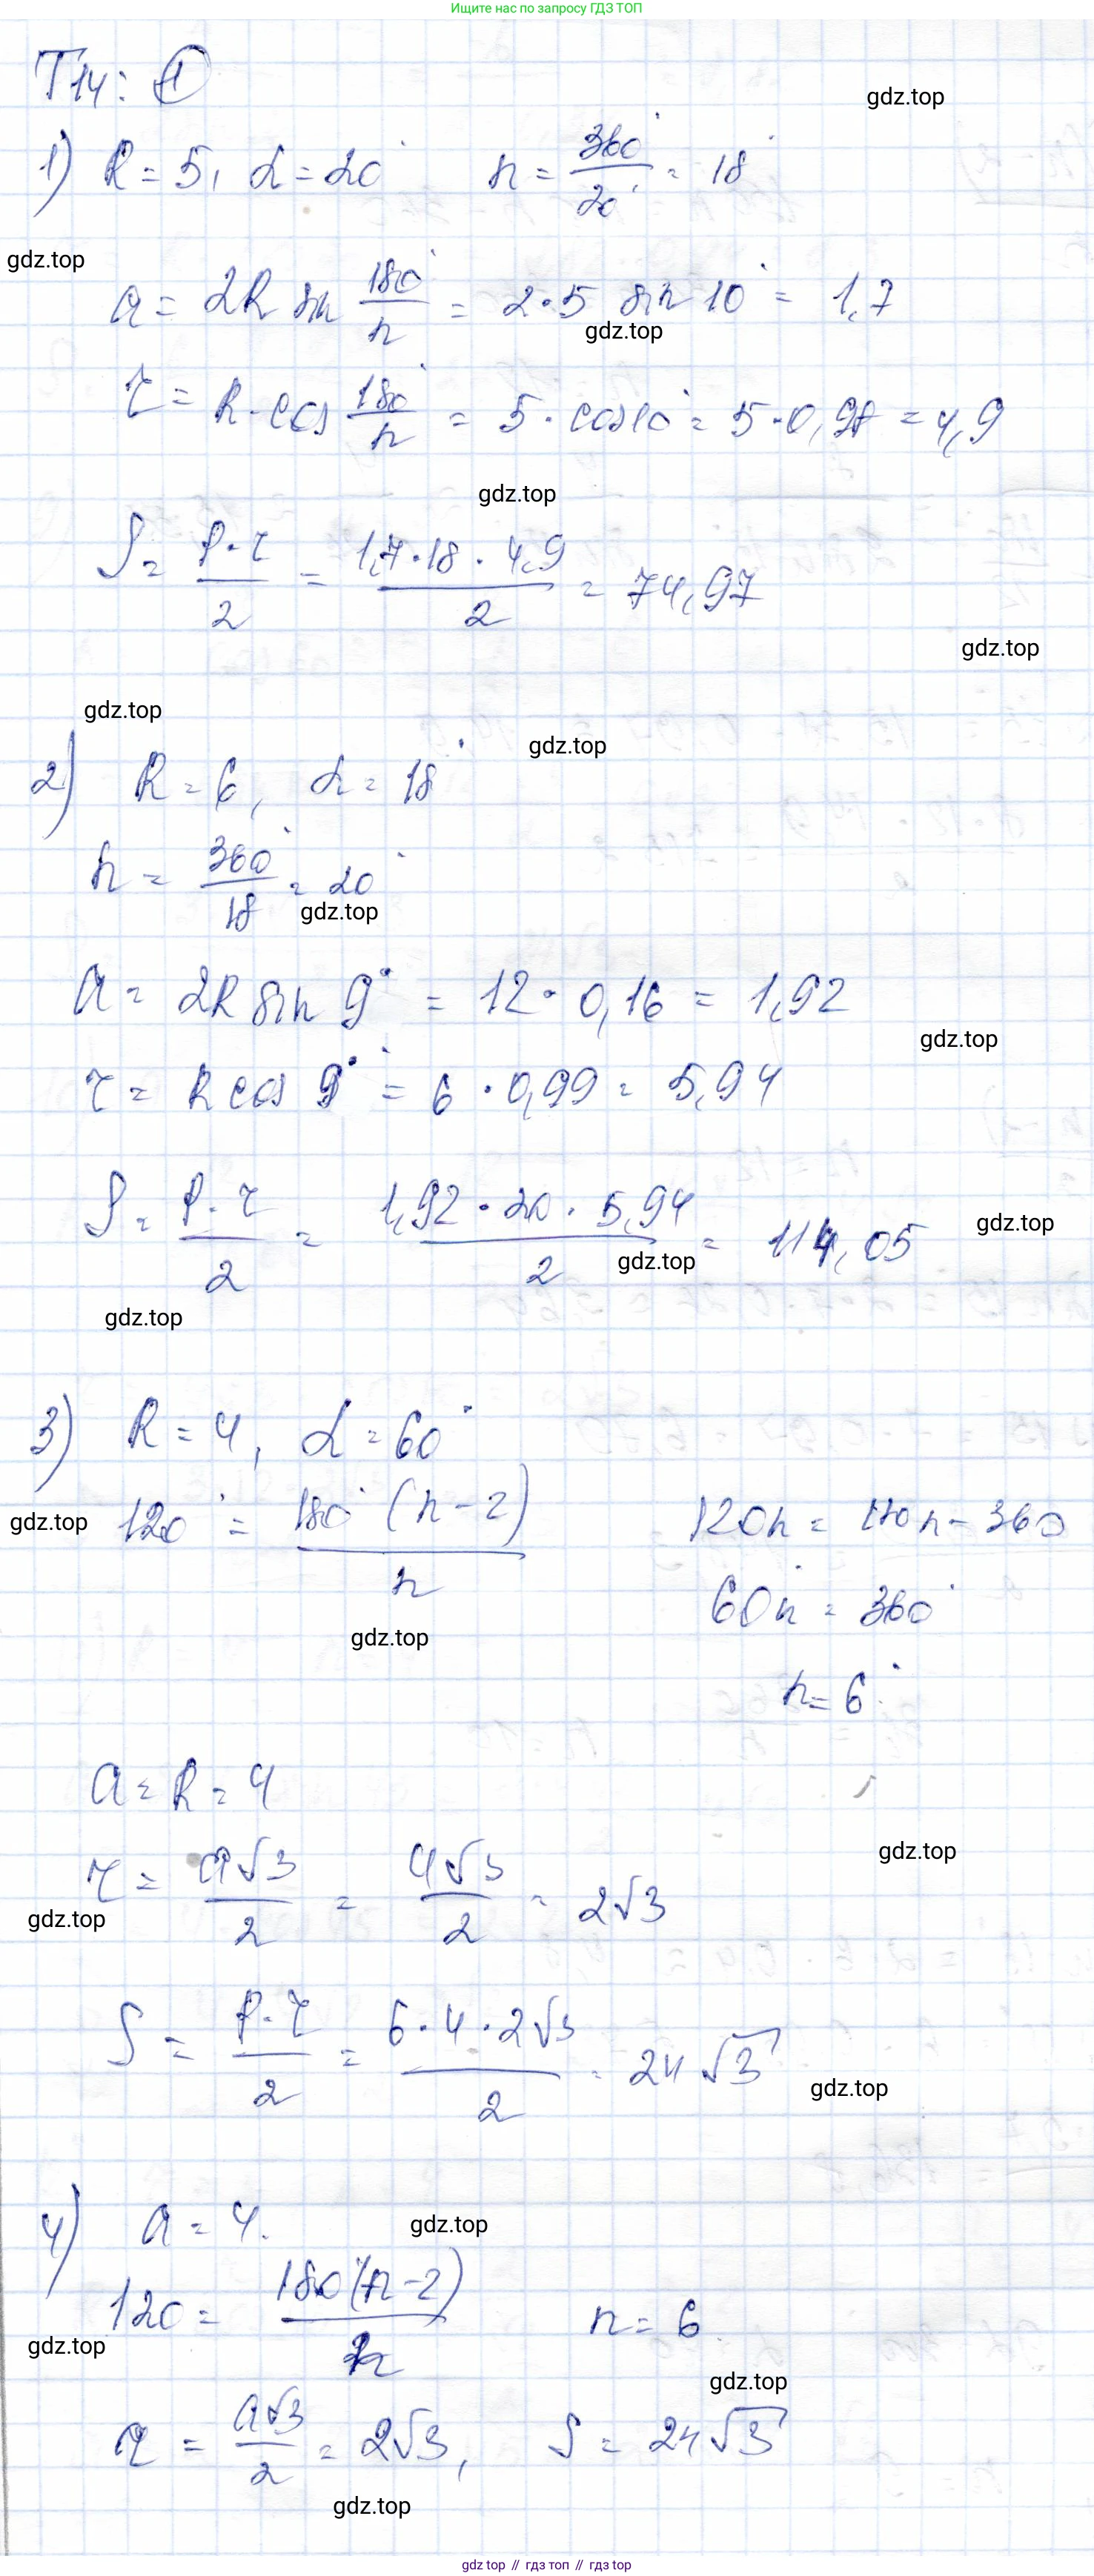 Ищите нас по запросу ГДЗ ТОП
Т14: ①
gdz.top
1) R = 5, α = 20° n = 360°/20° = 18°
gdz.top
a = 2R sin 180°/n = 2·5 sin 10° = 1,7
gdz.top
r = R·cos 180°/n = 5·cos10° = 5·0,98 = 4,9
gdz.top
S = P·r/2 = 1,7·18·4,9/2 = 74,97
gdz.top
gdz.top
gdz.top
2) R = 6, α = 18°
n = 360°/18 = 20°
gdz.top
a = 2R sin 9° = 12·0,16 = 1,92
gdz.top
r = R cos 9° = 6·0,99 = 5,94
S = P·r/2 = 1,92·20·5,94/2 = 114,05
gdz.top
gdz.top
gdz.top
3) R = 4, α = 60°
gdz.top
120° = 180°(n-2)/n 120n = 180n - 360
60n = 360°
gdz.top
n = 6
a = R = 4
gdz.top
r = a√3/2 = 4√3/2 = 2√3
gdz.top
S = P·r/2 = 6·4·2√3/2 = 24√3
gdz.top
4) a = 4.
gdz.top
120 = 180(n-2)/n n = 6
gdz.top
gdz.top
r = a√3/2 = 2√3, S = 24√3
gdz.top
gdz top // гдз топ // gdz top